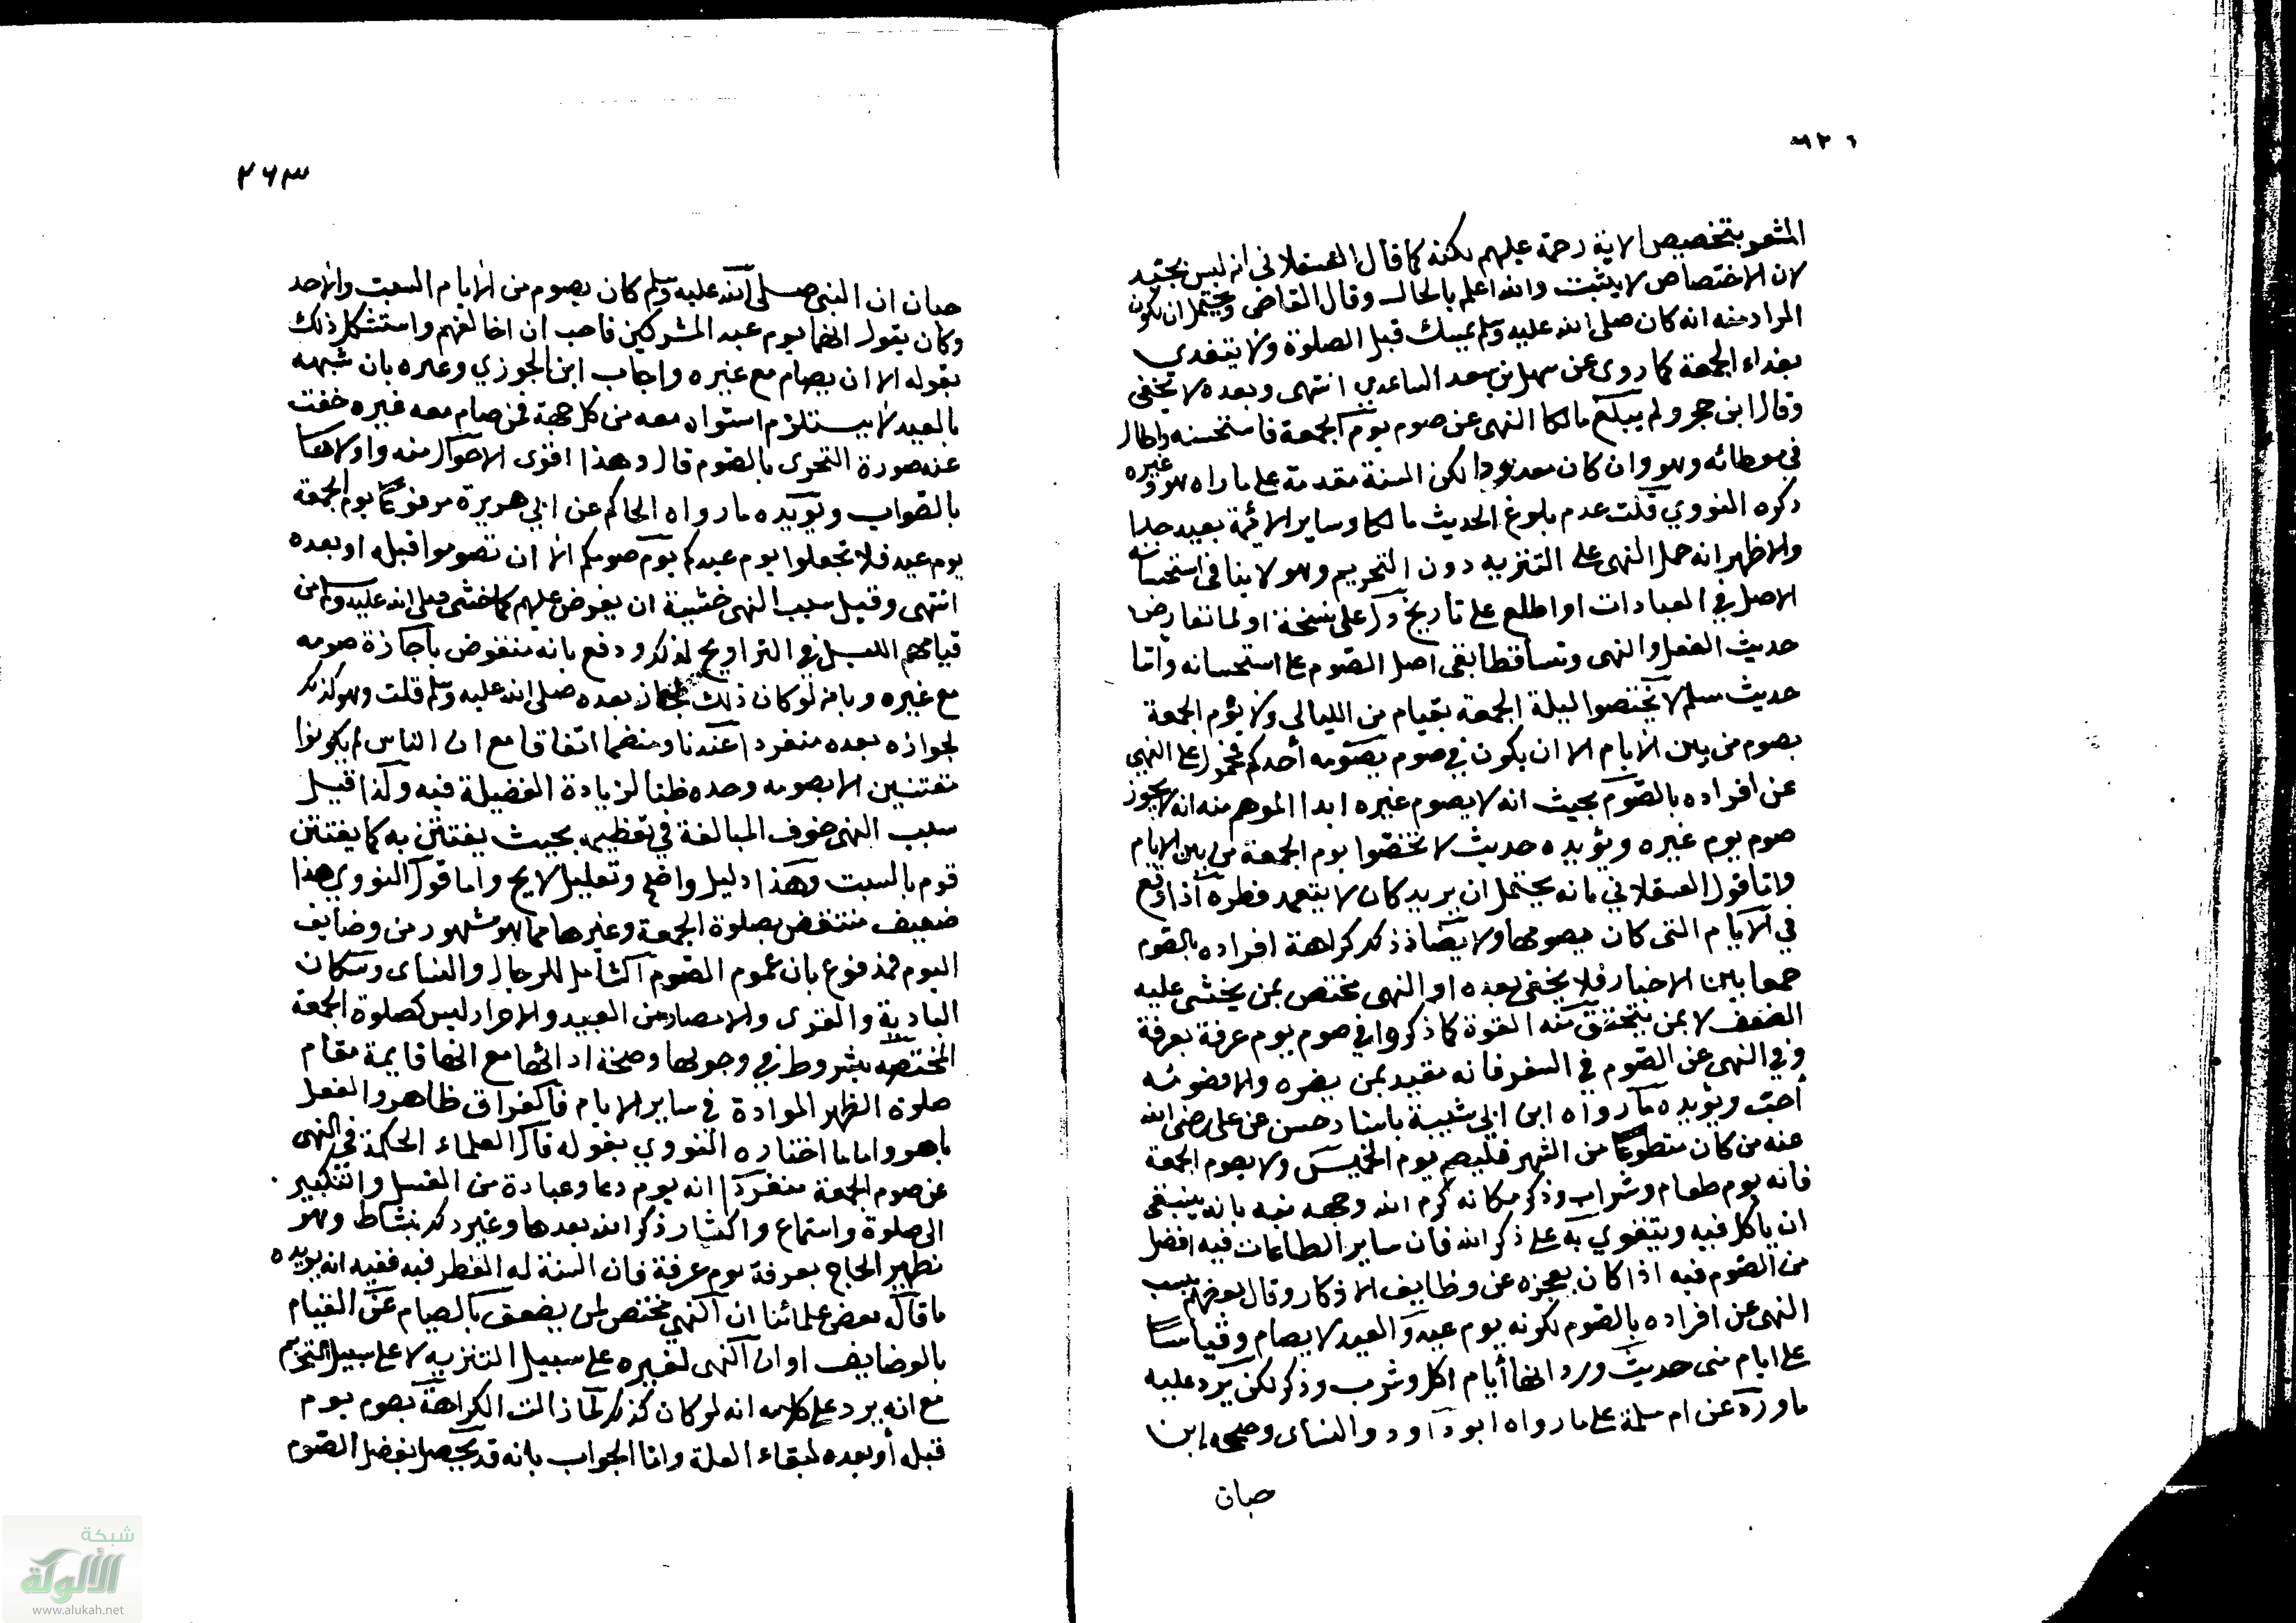 المشعر بتخصيص الاية رحمة عليهم لكنه كما قال العسقلاني انه ليس بجيد
لان الاختصاص لا يثبت والله اعلم بالحال وقال القاضى ويحتمل ان يكون
المراد منه انه كان صلى الله عليه وسلم يمسك قبل الصلوة ولا يتغدي
بغداء الجمعة كما روى عن سهل بن سعد الساعدي انتهى وبعده لا يخفى
وقال ابن حجر ولم يبلغ مالكا النهى عن صوم يوم الجمعة فاستحسنه واطال
في موطائه وهو وان كان معذورا لكن السنة مقدمة على ما راه هو وغيره
ذكره النووي قلت عدم بلوغ الحديث مالكا وساير الائمة بعيد جدا
والاظهر انه حمل النهى على التنزيه دون التحريم وهو لا ينافى استحسانه
الاصل في العبادات او اطلع على تاريخ دل على نسخه او لما تعارض
حديث الفعل والنهى وتساقطا بقى اصل الصوم على استحسانه واما
حديث مسلم لا تختصوا ليلة الجمعة بقيام من الليالى ولا يوم الجمعة
بصوم من بين الايام الا ان يكون في صوم يصومه أحدكم فمحمول على النهي
عن افراده بالصوم بحيث انه لا يصوم غيره ابدا الموهم منه انه لا يجوز
صوم يوم غيره ويؤيده حديث لا تخصوا يوم الجمعة من بين الايام
واما قول العسقلاني بانه يحتمل ان يريد كان لا يتعمد فطره اذا وقع
في الايام التى كان يصومها ولا يضاد ذلك كراهة افراده بالصوم
جمعا بين الاخبار فلا يخفى بعده او النهى مختص بمن يخشى عليه
الضعف لا بمن يتحقق منه القوة كما ذكروا في صوم يوم عرفة بعرفة
وفي النهى عن الصوم في السفر فانه مقيد بمن يضره والا فصومه
أحب ويؤيده ما رواه ابن ابي شيبة باسناد حسن عن على رضى الله
عنه من كان متطوعا من الشهر فليصم يوم الخميس ولا يصوم الجمعة
فانه يوم طعام وشراب وذكر مكانه كرم الله وجهه نبه بانه ينبغى
ان ياكل فيه ويتقوي به على ذكر الله فان ساير الطاعات فيه افضل
من الصوم فيه اذا كان يعجزه عن وظايف الاذكار وقال بعضهم سبب
النهى عن افراده بالصوم لكونه يوم عيد والعيد لا يصام وقياسا
على ايام منى حديث ورد انها أيام اكل وشرب وذكر لكن يرد عليه
ما ورد عن ام سلمة على ما رواه ابو داود والنساى وصححه ابن
حبان
٢٦٣
حبان ان النبى صلى الله عليه وسلم كان يصوم من الايام السبت والاحد
وكان يقول انهما يوم عيد المشركين فاحب ان اخالفهم واستشكل ذلك
بقوله الا ان يصام مع غيره واجاب ابن الجوزي وغيره بان شبهه
بالعيد لا يستلزم استواه معه من كل جهة فمن صام معه غيره خفت
عنه صورة التحرى بالصوم قال وهذا اقوى الاحوال منه واولاها
بالصواب ويؤيده ما رواه الحاكم عن ابي هريرة مرفوعا يوم الجمعة
يوم عيد فلا تجعلوا يوم عيدكم يوم صومكم الا ان تصوموا قبله او بعده
انتهى وقيل سبب النهى خشية ان يفرض عليهم كما خشى صلى الله عليه وسلم من
قيامهم الليل في التراويح لذلك ودفع بانه منقوض باجازة صومه
مع غيره وبانه لو كان ذلك لجاز بعده صلى الله عليه وسلم قلت وهو كذلك
لجوازه بعده منفردا عندنا ومنضما اتفاقا مع ان الناس لم يكونوا
مفتنين الا بصومه وحده ظنا لزيادة الفضيلة فيه ولذا قيل
سبب النهى خوف المبالغة في تعظيمه بحيث يفتتن به كما يفتتن
قوم بالسبت وهذا دليل واضح وتعليل لايح واما قول النووي هذا
ضعيف منتقض بصلوة الجمعة وغيرها مما هو مشهور من وضايف
اليوم فمدفوع بان عموم الصوم الشامل للرجال والنساى وسكان
البادية والقرى والامصار من العبيد والاحرار ليس كصلوة الجمعة
المختصة بشروط في وجوبها وصحة ادائها مع انها قايمة مقام
صلوة الظهر الموادة في ساير الايام فالفراق ظاهر والفعل
باهر واما ما اختاره النووي بقوله قال العلماء الحكمة في النهى
عن صوم الجمعة منفردا انه يوم دعا وعبادة من الغسل والتبكير
الى صلوة واستماع واكثار ذكر الله بعدها وغير ذلك بنشاط وهو
نظير الحاج بعرفة يوم عرفة فان السنة له الفطر فيه ففيه انه يويده
ما قاله بعض علمائنا ان النهي مختص لمن يضعف بالصيام عن القيام
بالوضايف او ان النهى لغيره على سبيل التنزيه لا على سبيل التحريم
مع انه يرد على كلامه انه لو كان كذلك لما زالت الكراهة بصوم يوم
قبله أو بعده لبقاء العلة واما الجواب بانه قد يحصل بفضل الصوم
شبكة
الألوكة
www.alukah.net